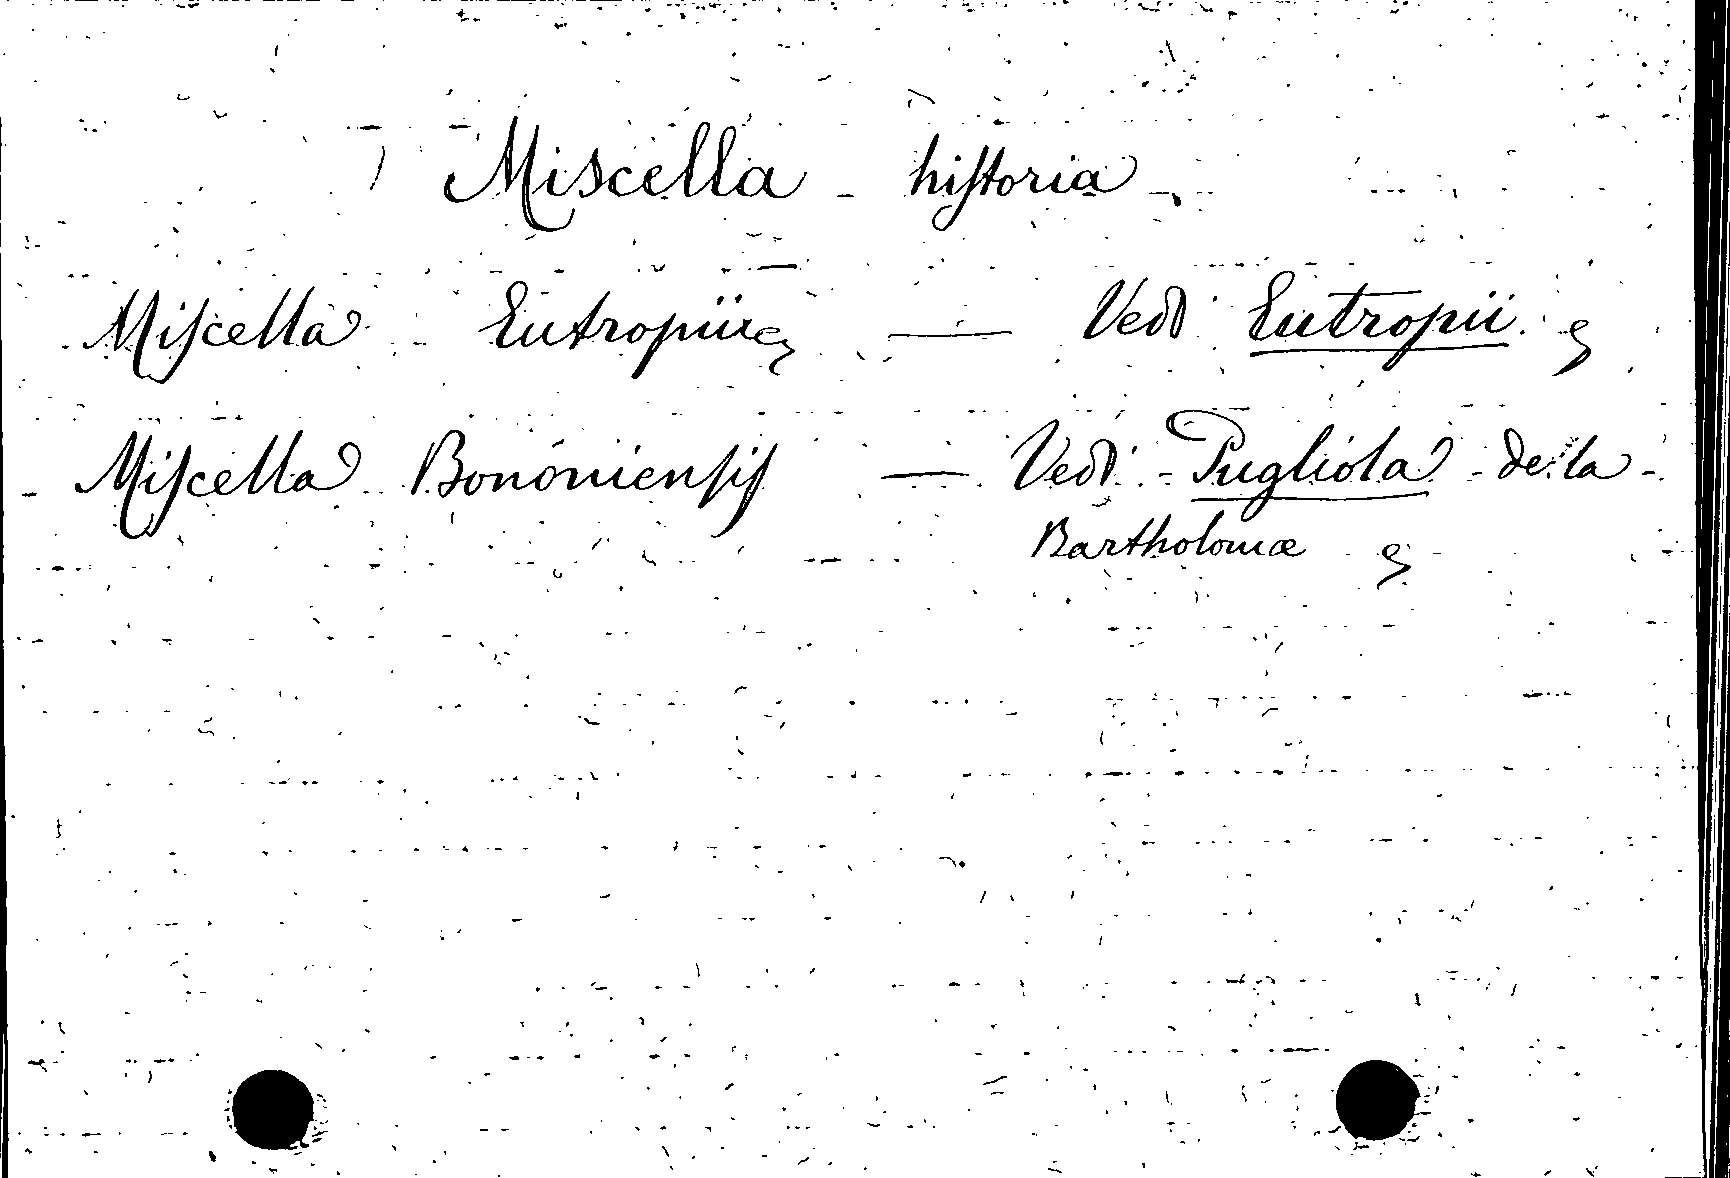 Miscella historia
Miscella Eutropii — Vedi Eutropii
Miscella Bononiensis — Vedi Pugliola dela
Bartholomæ